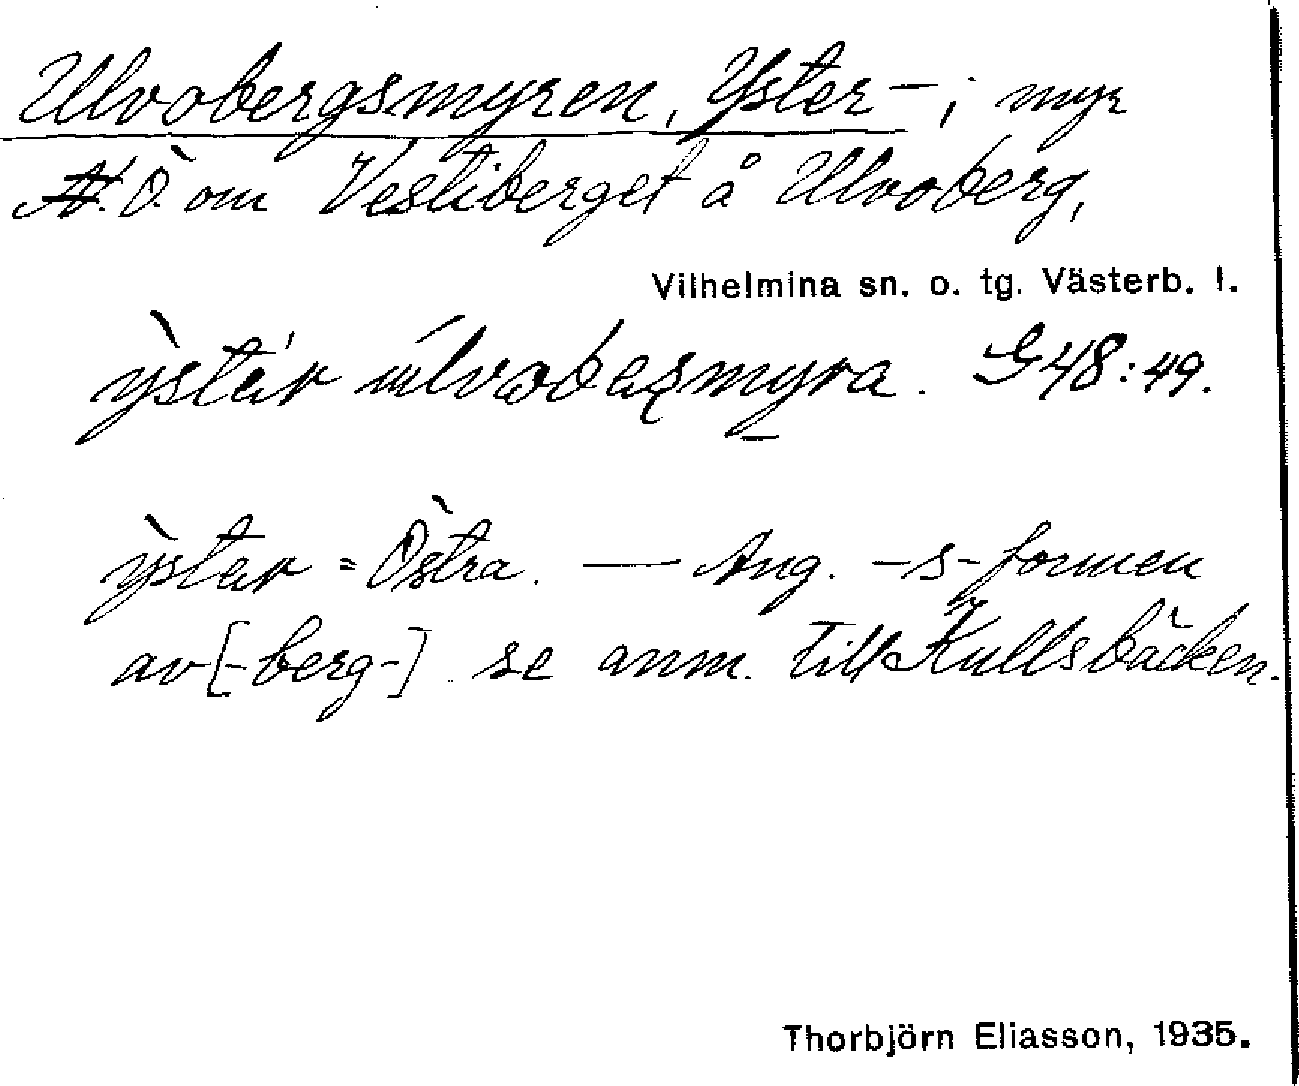 Ulvobergsmyren, Yster-; myr
N.Ö om Vestiberget å Ulvoberg,
Vilhelmina sn. o. tg. Västerb. l.
ystär ulvobeşmyra. G48:49.
ystär = Östra. — Ang. -s-formen
av [-berg-] se anm. till Kullsbäcken.
Thorbjörn Eliasson, 1935.